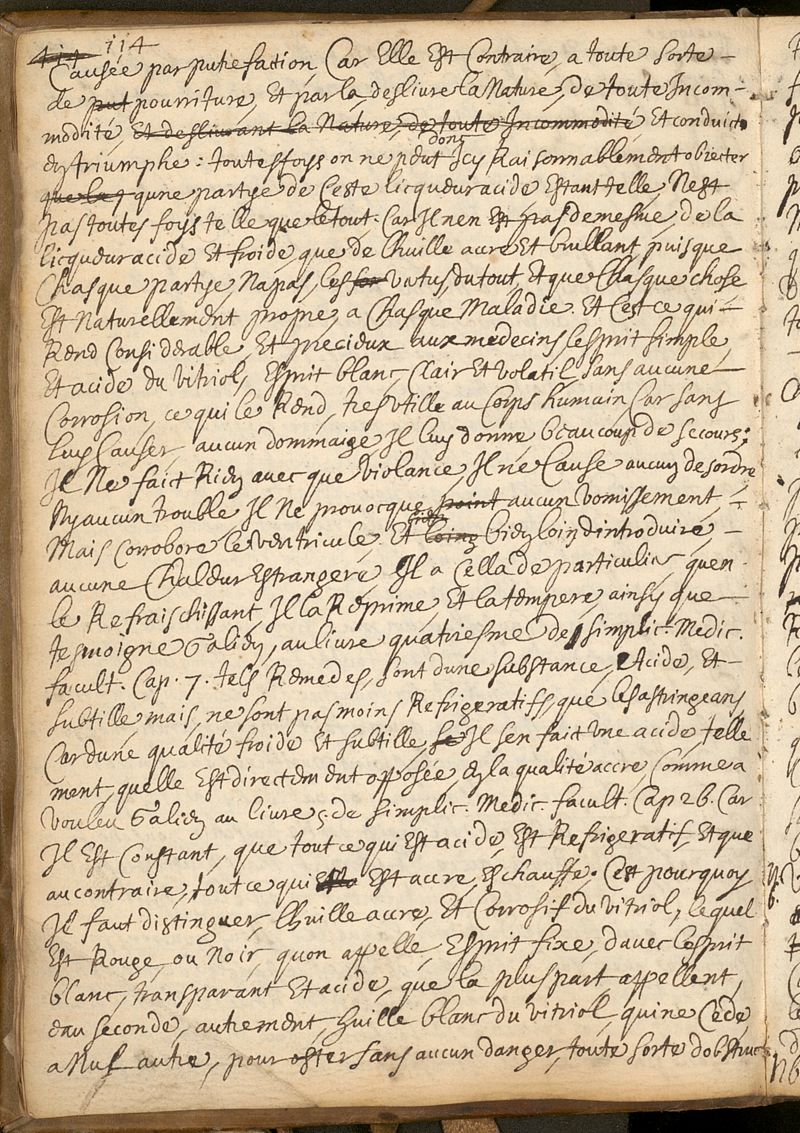 414 114
Causée par putrefaction, Car Elle Est Contraire, a toute sorte
de put pourriture, Et par la, deslivre la Nature, de toute Incom-
modité, Et deslivrant la Nature, de toute Incommodité Et conduict
en triumphe : toutesfoys on ne peut donc Icy Raisonnablement obiecter
que la q qune partye de Ceste licqueur acide Estant telle, Nest
pas toutes foys telle que le tout. Car Il nen Est pas de mesme, de la
licqueur acide Et froide, que de lhuille acre Et brullant, puisque
Chasque partye, Na pas, les for vertus, du tout, Et que Chasque chose
Est Naturellement propre, a Chasque Maladie. Et Cest ce qui
Rend Considerable, Et precieux aux medecins lesprit simple,
Et acide du vitriol, Esprit blanc, Clair Et volatil sans aucune
Corrosion, ce qui le Rend, tres utille au Corps humain Car sans
luy Causer, aucun dommaige Il luy donne beaucoup de secours;
Il Ne faict Rien avec que violance, Il ne Cause aucun desordre
Ny aucun trouble Il Ne provocque point aucun vomissement,
Mais Corrobore le ventricule, Et loing bien loin dintroduire
aucune Chaleur Estrangere, Il a Cella de particulier quen
le Refraischissant, Il la Reprime, Et la tempere, ainsy que
tesmoigne Galien, au livre quatriesme de simplic. Medic.
facult. Cap. 7. tels Remedes, sont dune substance, Acide, Et
subtille mais, ne sont pas moins Refrigeratifs, que les astringeans,
Car dune qualité froide Et subtille, se Il sen faict une acide telle
ment, quelle Est directement opposée, en la qualité accre, Comme a
vouleu Galien au livre 5. de simplic. Medic. facult. Cap 26. Car
Il Est Constant, que tout ce qui Est acide, Est Refrigeratif, Et que
au contraire, tout ce qui Est accre, Eschauffe. Cest pourquoy
Il faut distinguer, lhuille accre, Et Corrosif du vitriol, lequel
Est Rouge, ou Noir, quon appelle, Esprit fixe, davec lesprit
blanc, transparant Et acide, que la plus part appellent,
eau seconde, autrement, huille blanc du vitriol, qui ne Cede
a Nul autre, pour oster sans aucun danger, toute sorte dobstruc